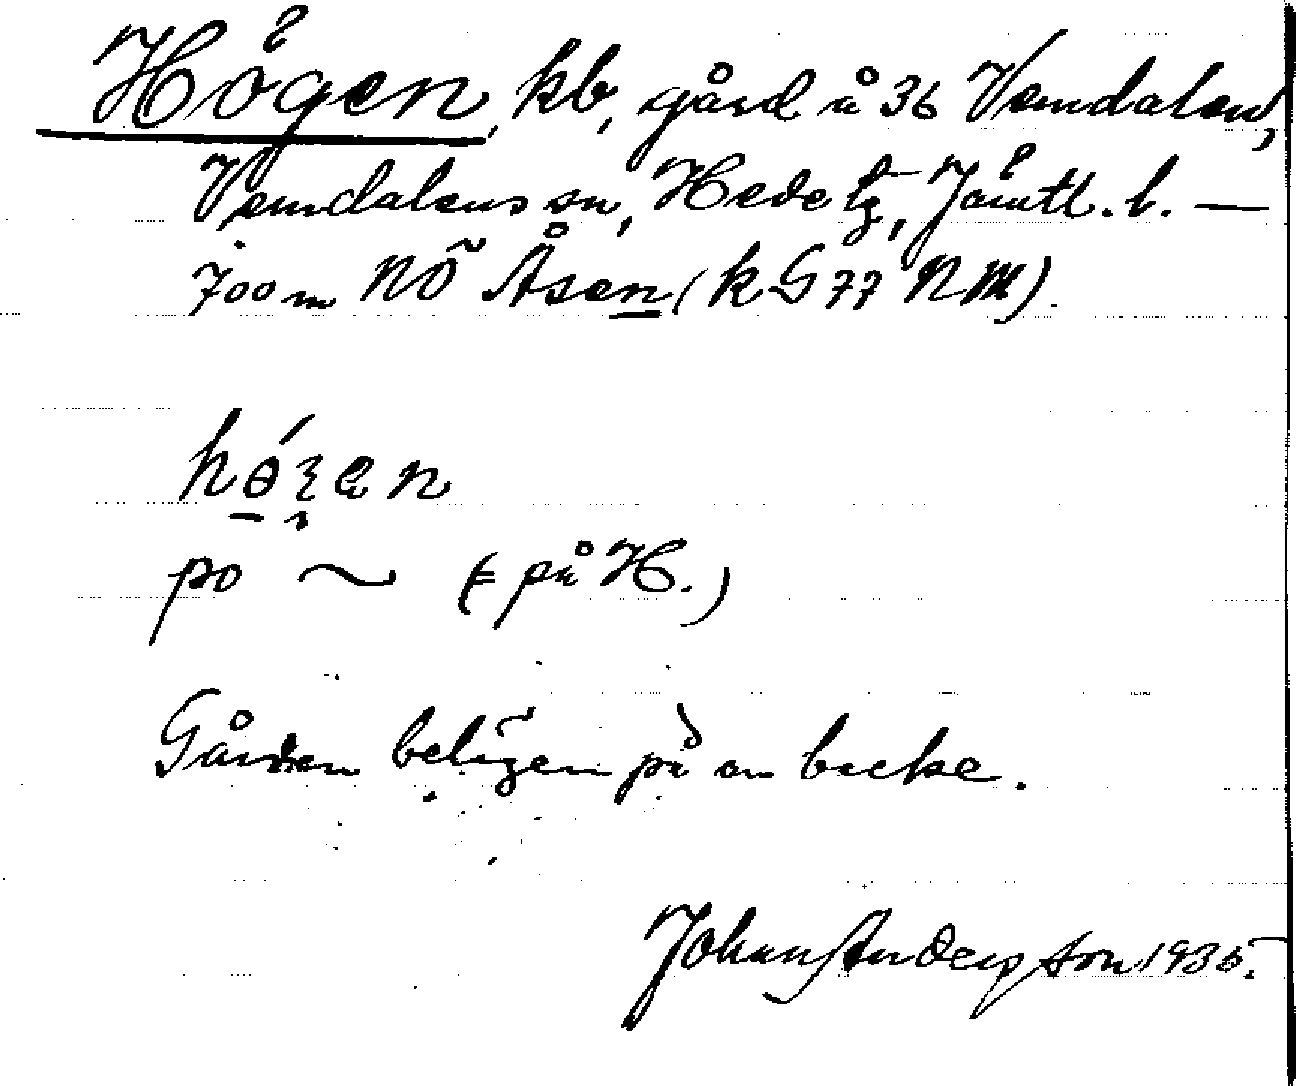 Högen, kb, gård å 36 Vemdalen,
Vemdalens sn, Hede tg, Jämtl. l. —
700 m NÖ Åsen (k G 77 NM).
po ~ (= på H.)
Gården belägen på en backe.
Johan Anderson 1935.